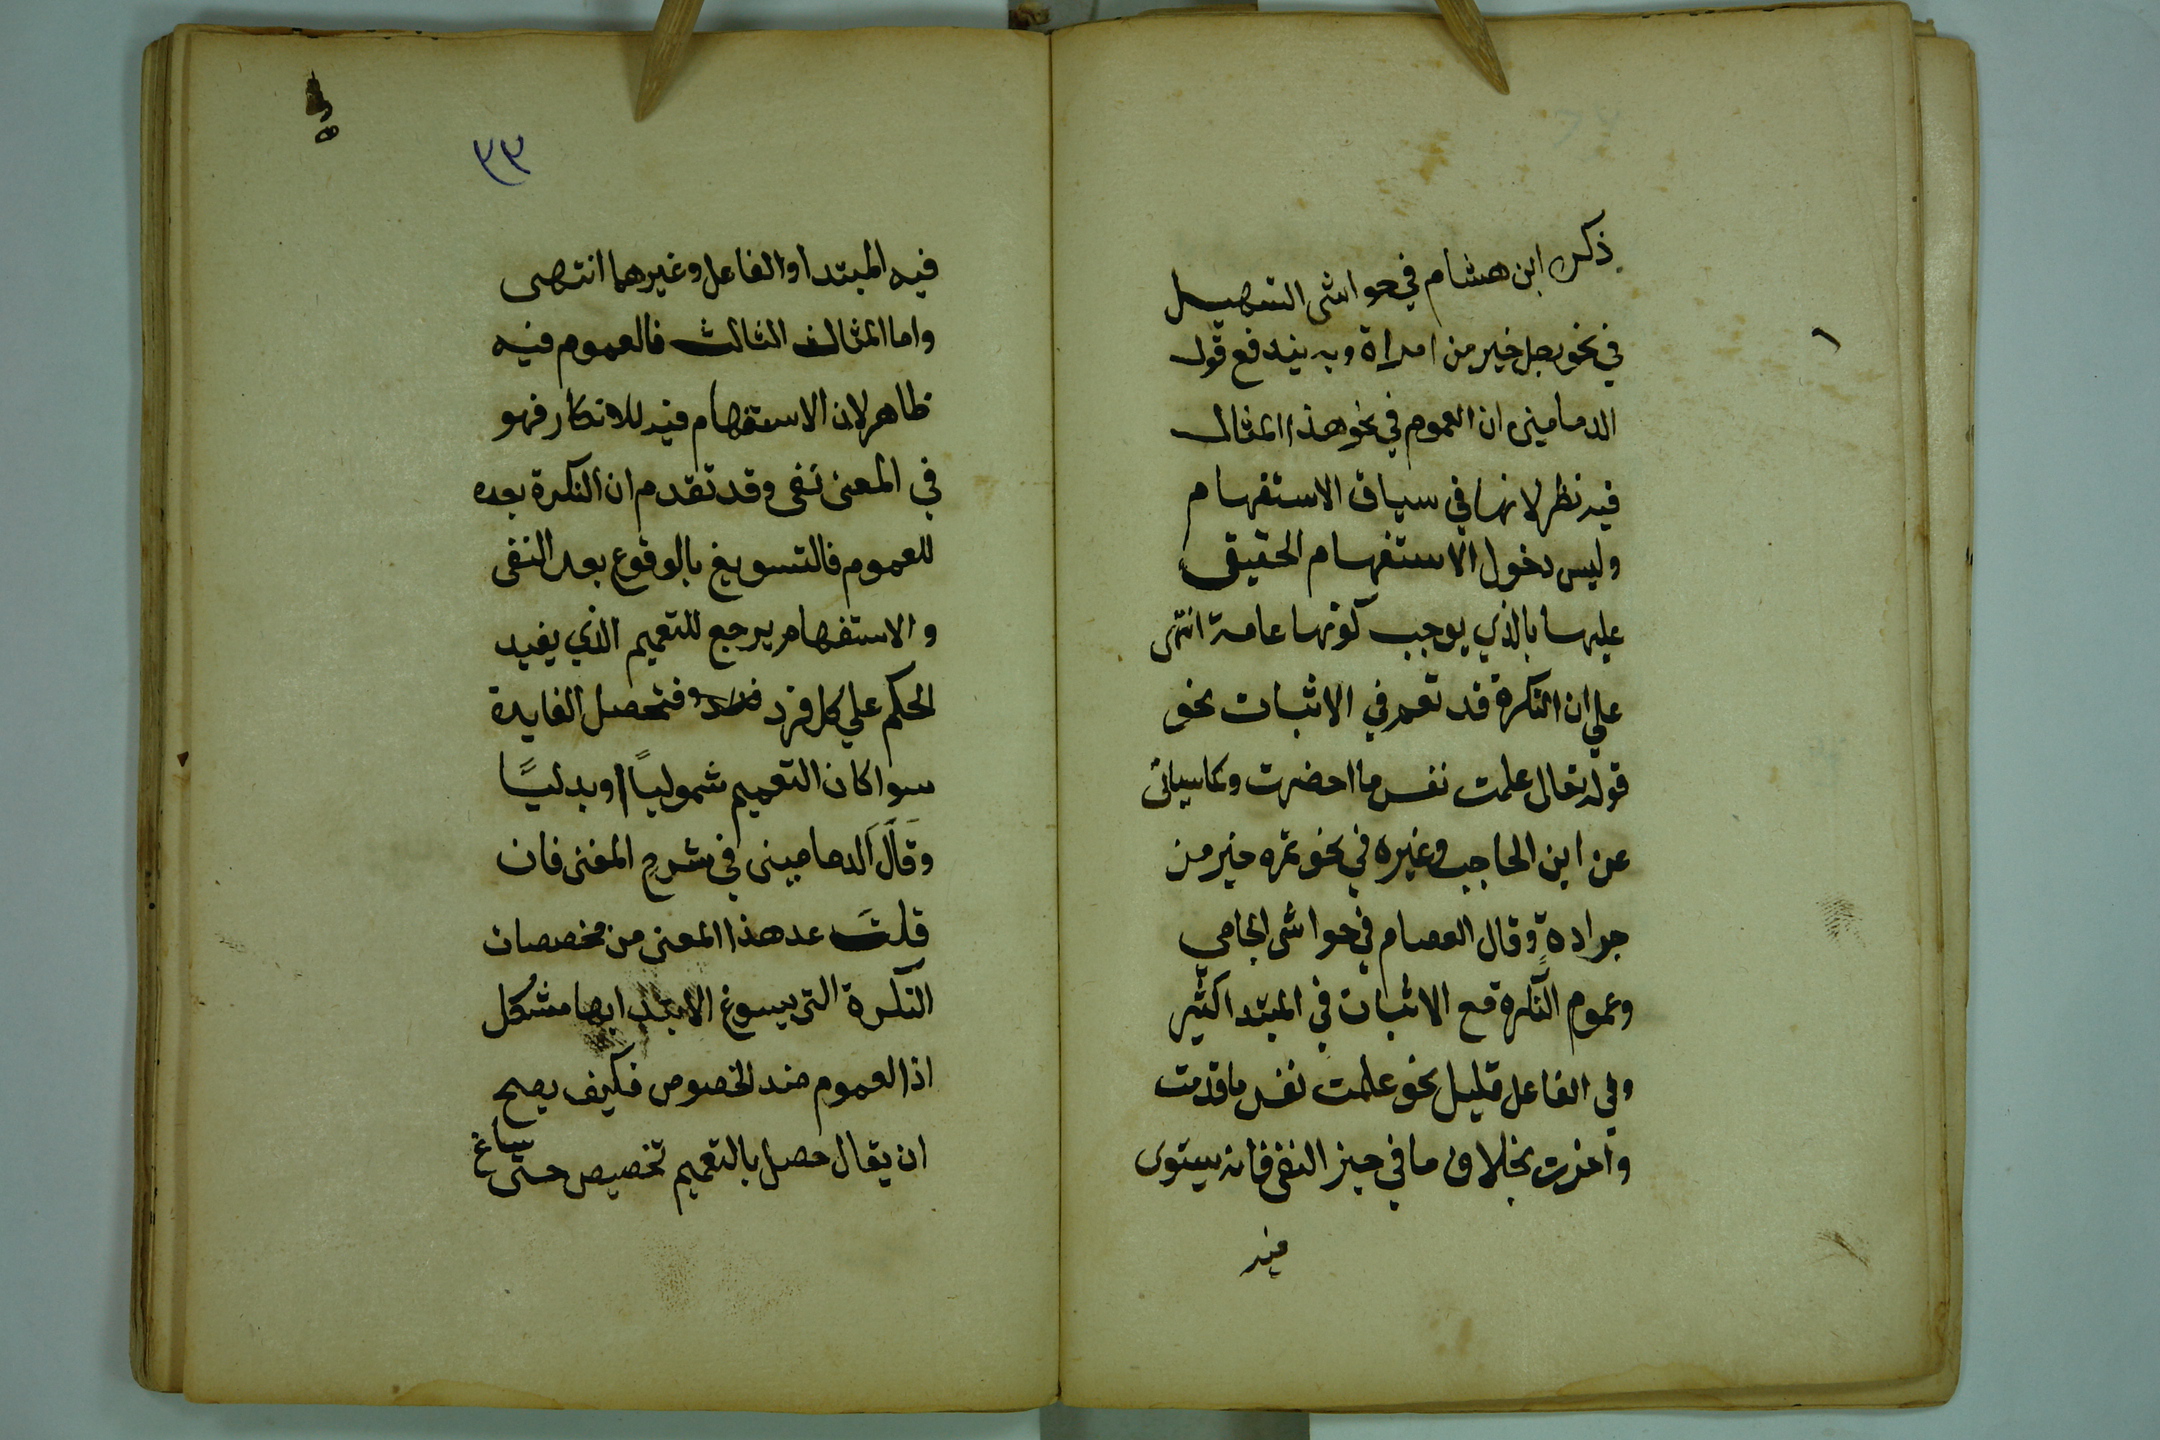 ذكره ابن هشام في حواشى التسهيل
في نحو رجل خير من امراة وبه يندفع قول
الدمامينى ان العموم في نحو هذا المثال
فيه نظر لانها في سياق الاستفهام
وليس دخول الاستفهام الحقيقى
عليها بالذي يوجب كونها عامة انتهى
علي ان النكرة قد تعم في الاثبات نحو
قوله تعالى علمت نفس ما احضرت وكما سياتى
عن ابن الحاجب وغيره في نحو تمره خير من
جرادة وقال العصام في حواشى الجامى
وعموم النكرة مع الاثبات في المبتدا كثير
وفي الفاعل قليل نحو علمت نفس ما قدمت
واخرت بخلاف ما في حيز النفى فانه يستوى
فيه
٣٣
فيه المبتدا والفاعل وغيرهما انتهى
واما المثال الثالث فالعموم فيه
ظاهر لان الاستفهام فيه للانكار فهو
في المعنى نفى وقد تقدم ان النكرة بعده
للعموم فالتسويغ بالوقوع بعد النفى
والاستفهام يرجع للتعميم الذي يفيد
الحكم علي كل فرد فرد فتحصل الفايدة
سوا كان التعميم شموليًا اوبدليًا
وقال الدمامينى في شرح المغنى فان
قلت عد هذا المعنى من مخصصات
النكرة التى يسوغ الابتدا بها مشكل
اذ العموم ضد الخصوص فكيف يصح
ان يقال حصل بالتعميم تخصيص حتى ساغ